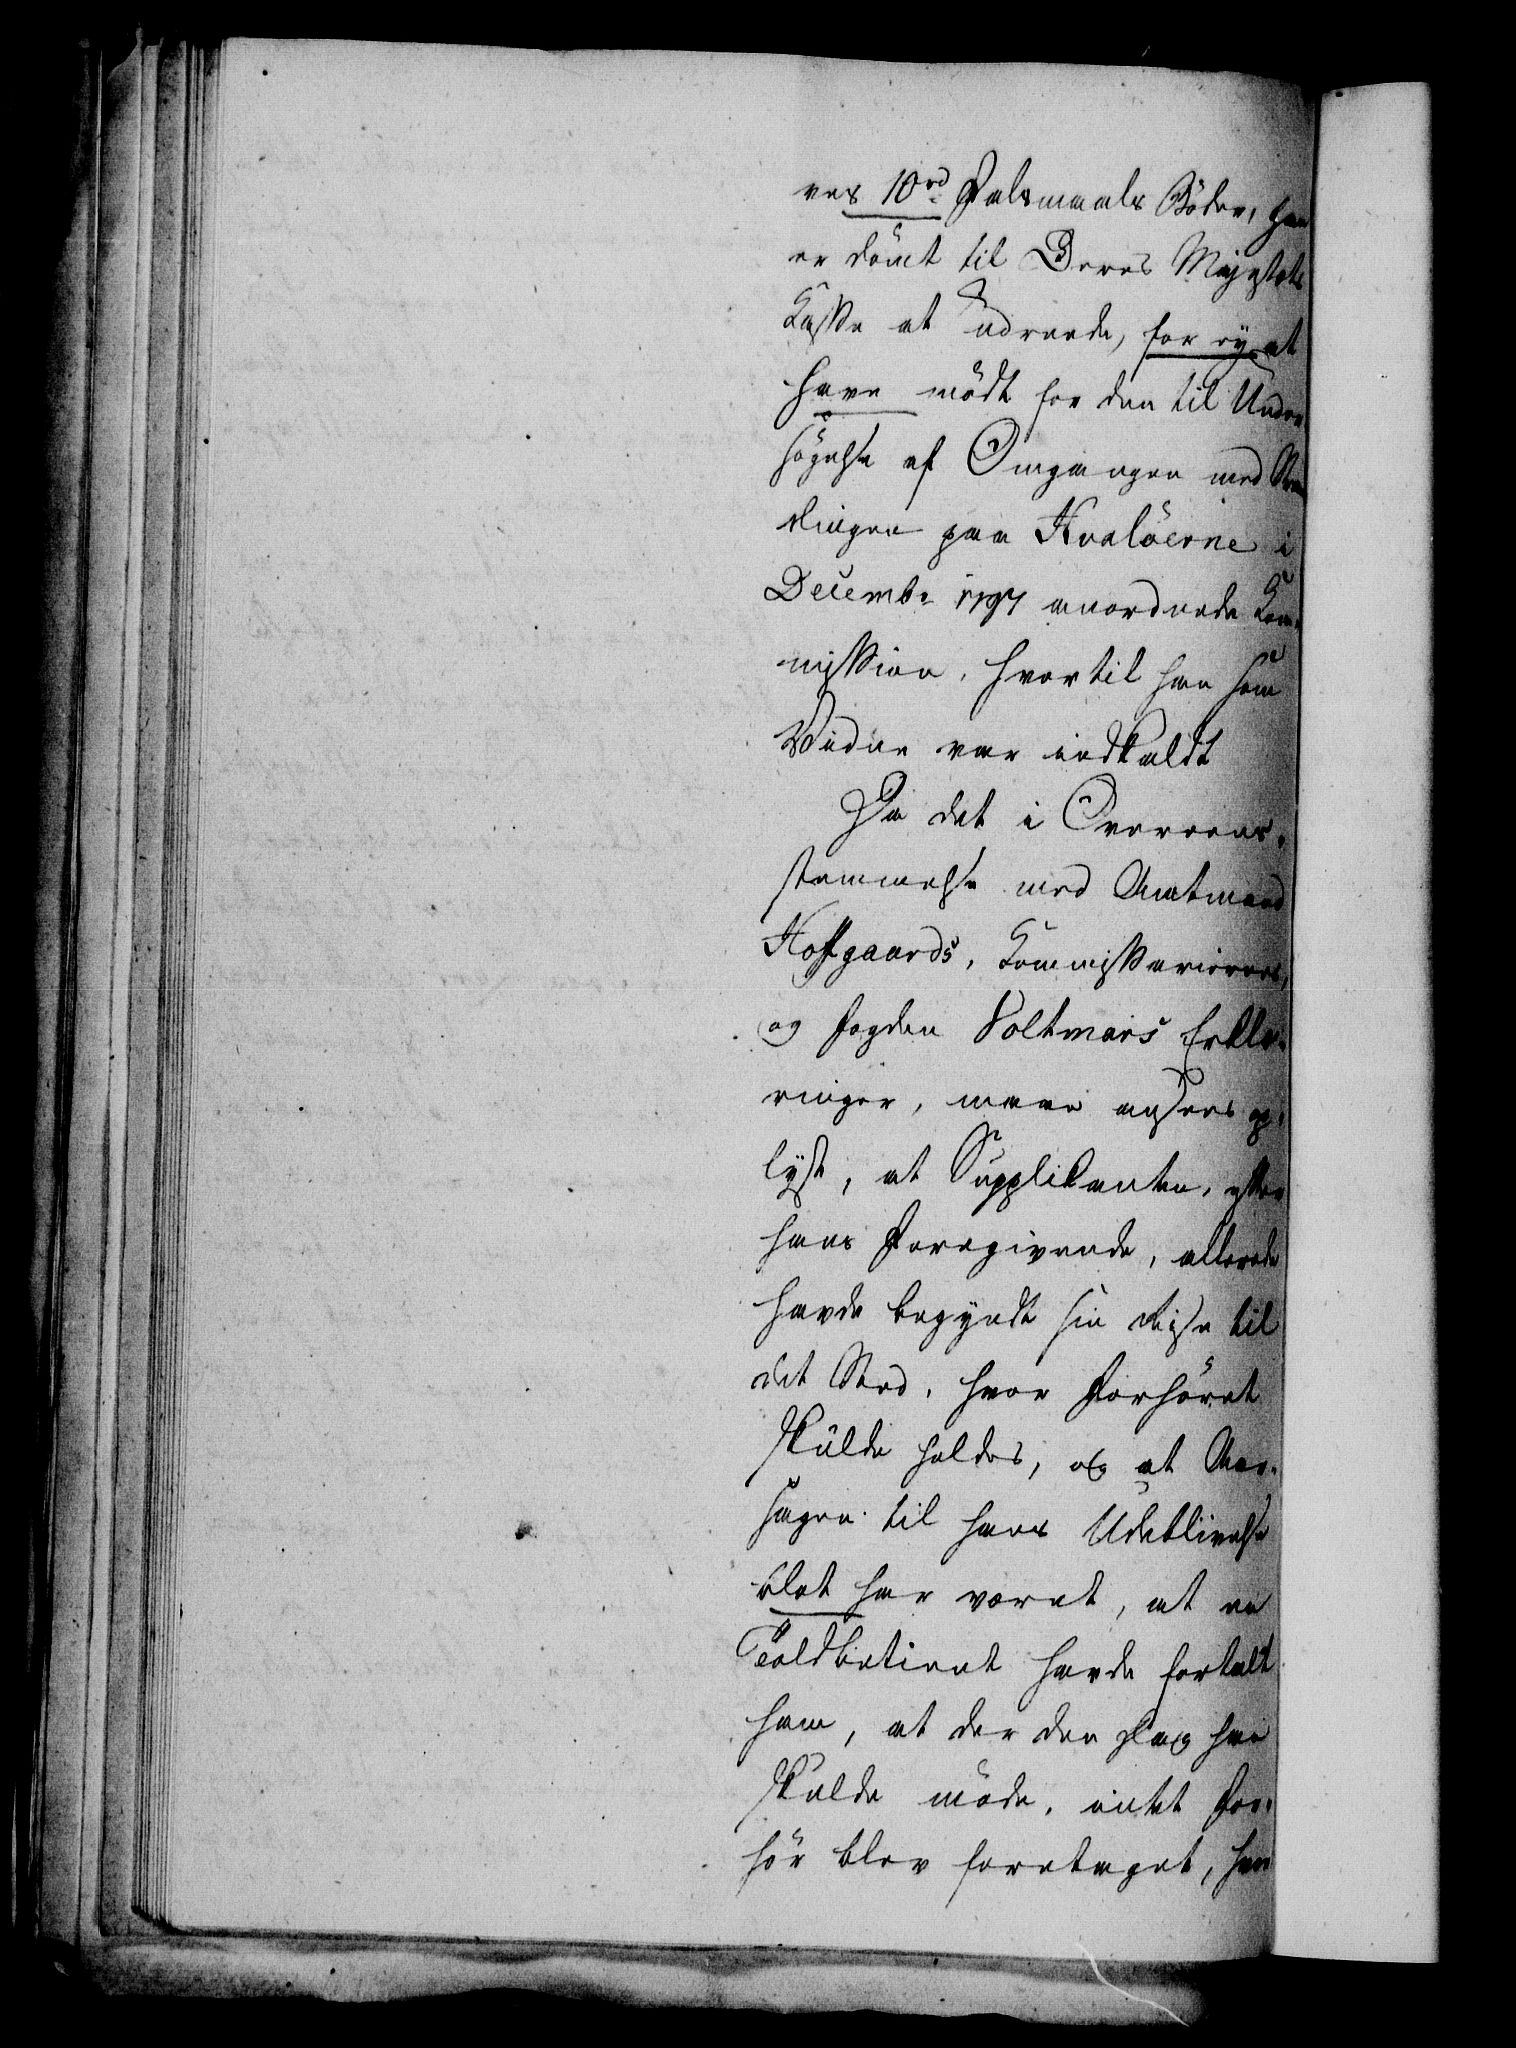 res 10 rd Falsmaals Bøder, han
er dömt til Deres Majestæts
Kasse at üdreede, for ey at
have mödt for den til Under
sögelse af Omgangen med Stran
dingen paa Hvalöerne i
Decembr 1797 anordnede Kom-
mission, hvortil han som
Vidne var indkaldt
Da det i Overeens-
stemmelse med Amtmand
Hofgaards, Kommissariernes,
og Fogden Voltmars Erklæ-
ringer, maae ansees op-
lyst, at Supplikanten, efter
hans Foregivende, allerede
havde begyndt sin Reise til
det Sted, hvor Forhöret
skülde holdes, og at Aar-
sagen til hans Udeblivelse
blot har været, at en
Toldbetient havde fortalt
ham, at der den Dag han
skulde möde, intet For-
hör blev foretaget, han